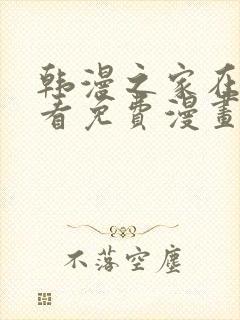 韩漫之家在
看免费漫畫
不落空塵